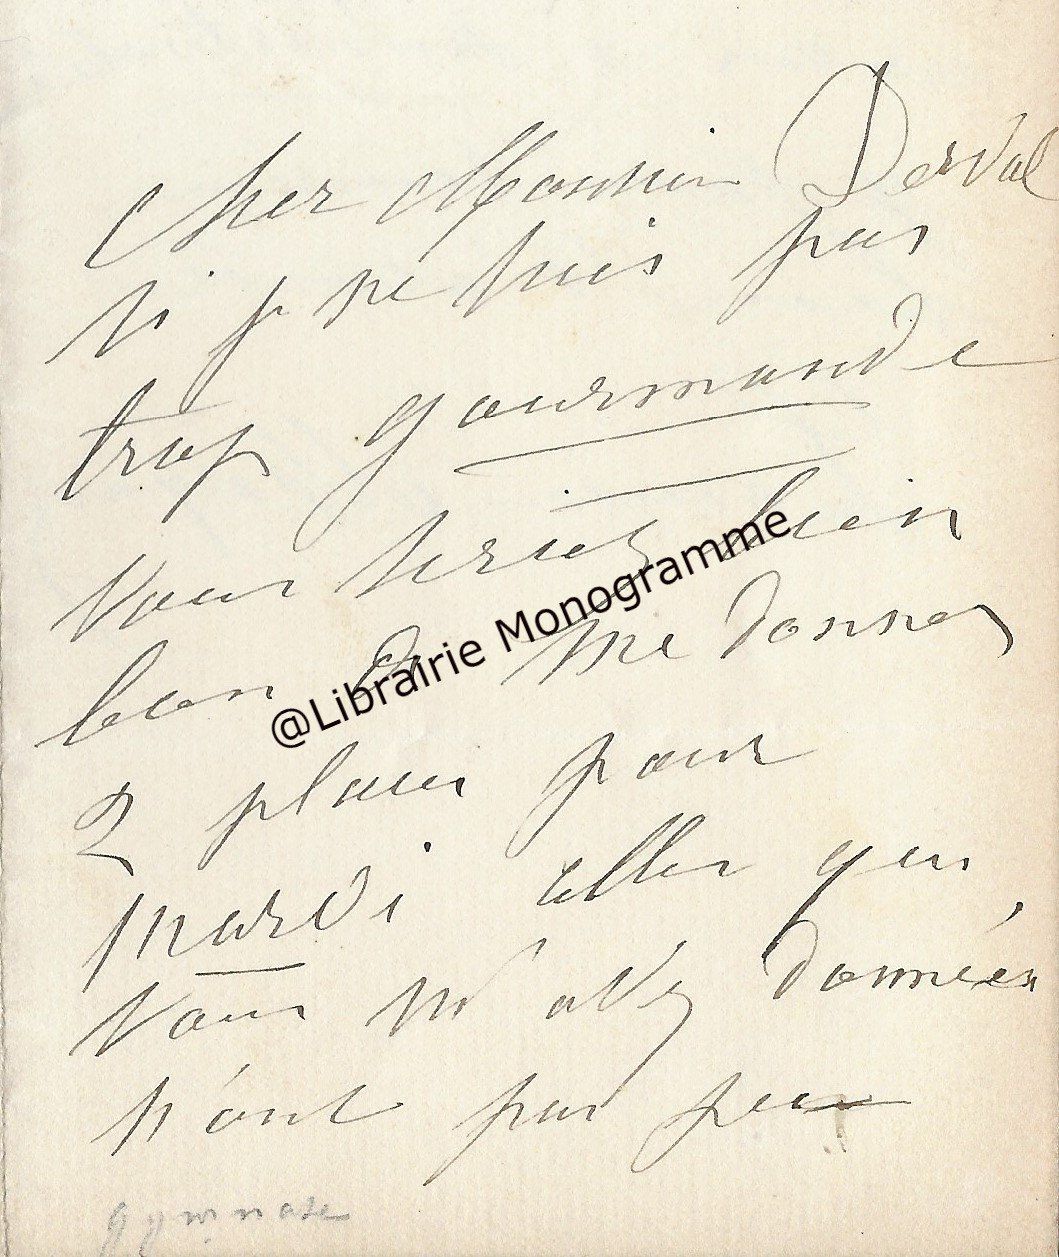 Cher Monsieur Derval
si je ne suis pas
trop gourmande
vous seriez bien
bon de me donner
2 places pour
mardi celles que
vous m'avez données
n'ont pas pu
gymnase
@Librairie Monogramme